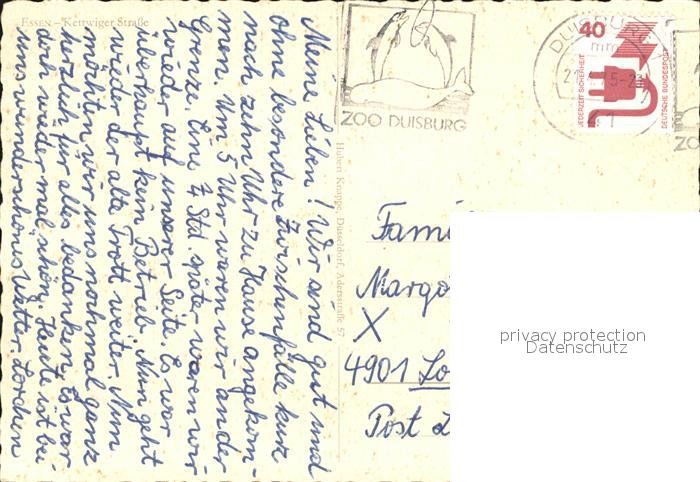 ESSEN – Kettwiger Straße
Meine Lieben! Wir sind gut und
ohne besondere Zwischenfälle kurz
nach zehn Uhr zu Hause angekom-
men. Um 5 Uhr waren wir an der
Grenze. Eine ¾ Std. später waren wir
wieder auf unserer Seite. Es war
überhaupt kein Betrieb. Nun geht
wieder der alte Trott weiter. Nun
möchten wir uns nochmal ganz
herzlich für alles bedanken. Es war
doch wieder mal schön. Heute ist bei
uns wunderschönes Wetter. Lorchen
Hubert Knappe, Düsseldorf, Adersstraße 57
ZOO DUISBURG
DUISBURG
41
40
JEDERZEIT SICHERHEIT
DEUTSCHE BUNDESPOST
ZO
Fami
Margo
X
4901 Lo
Post L
privacy protection
Datenschutz